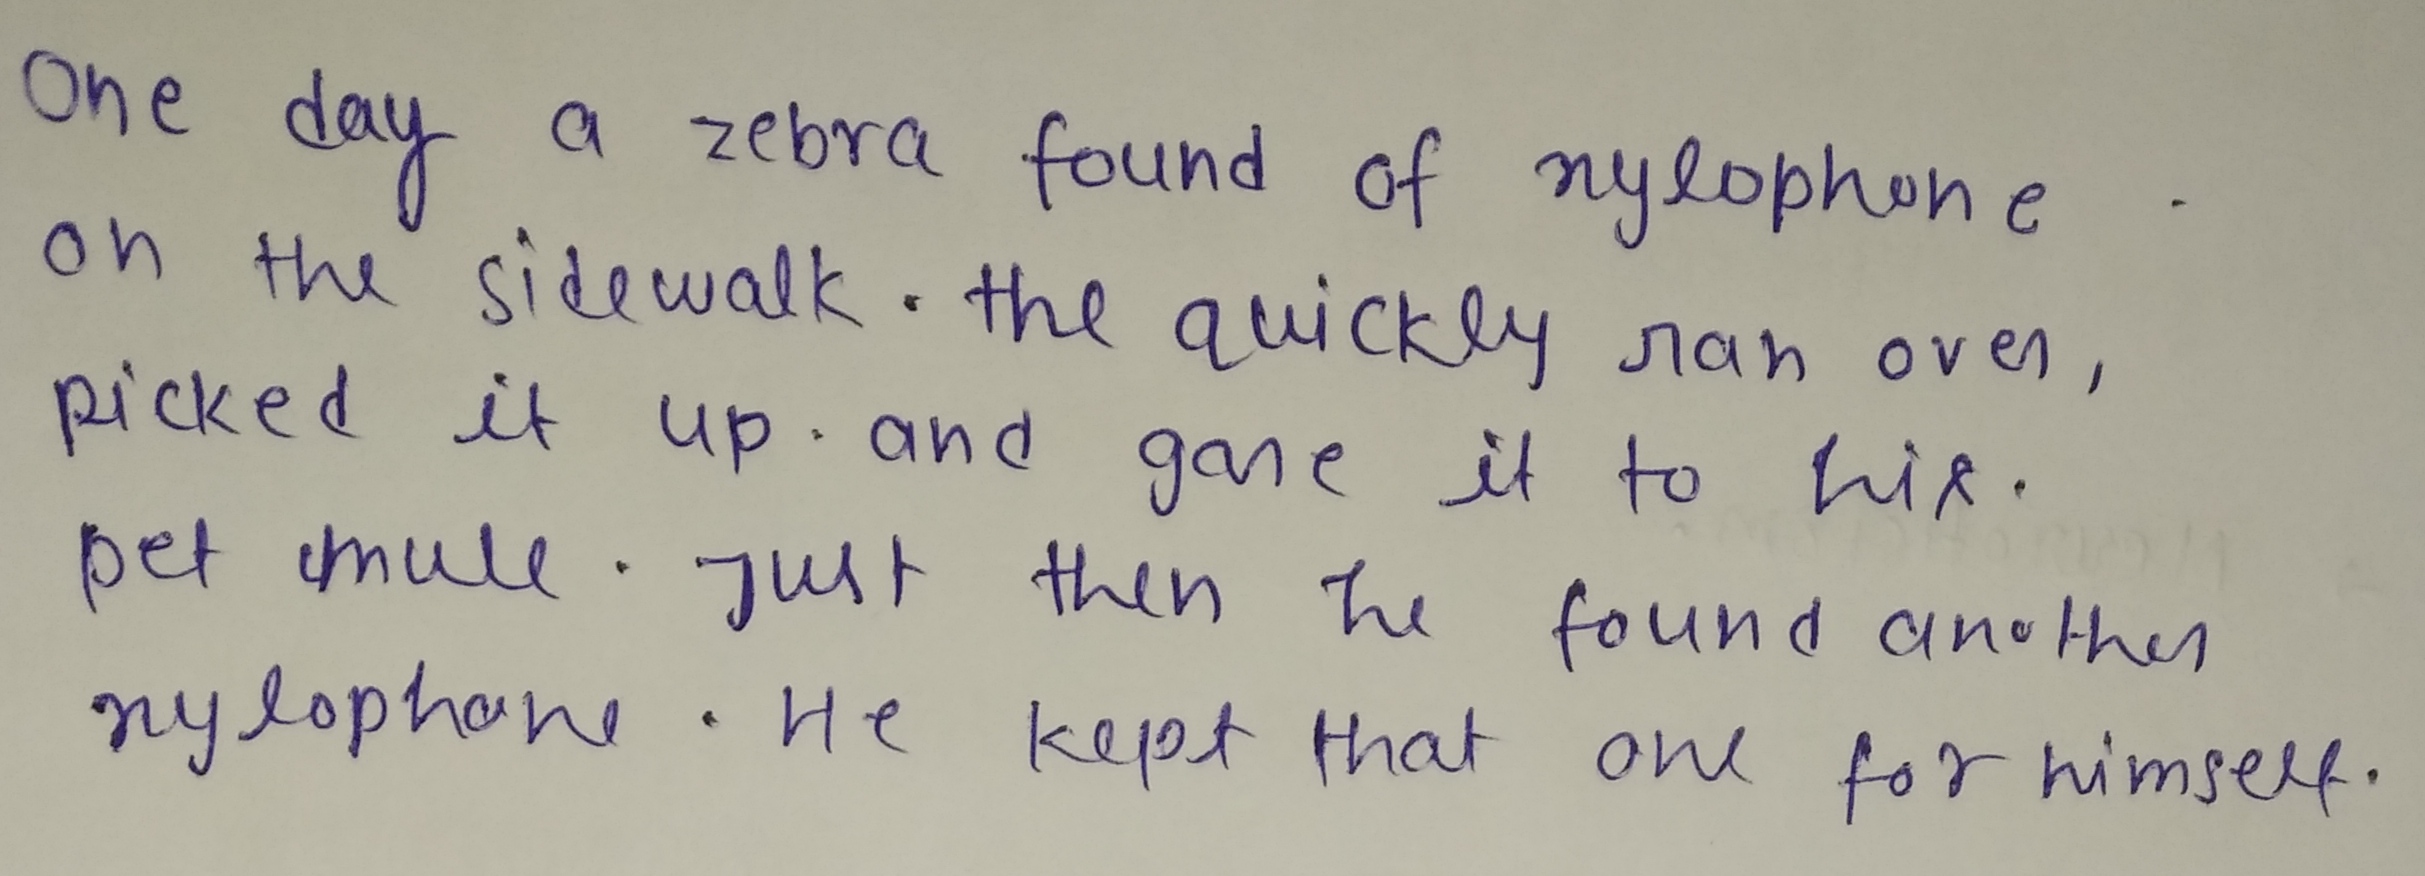 One day a zebra found of nylophone .
on the sidewalk. the quickly ran over,
picked it up. and gane it to his.
pet mule. Just then he found another
nylophone. He kept that one for himself.